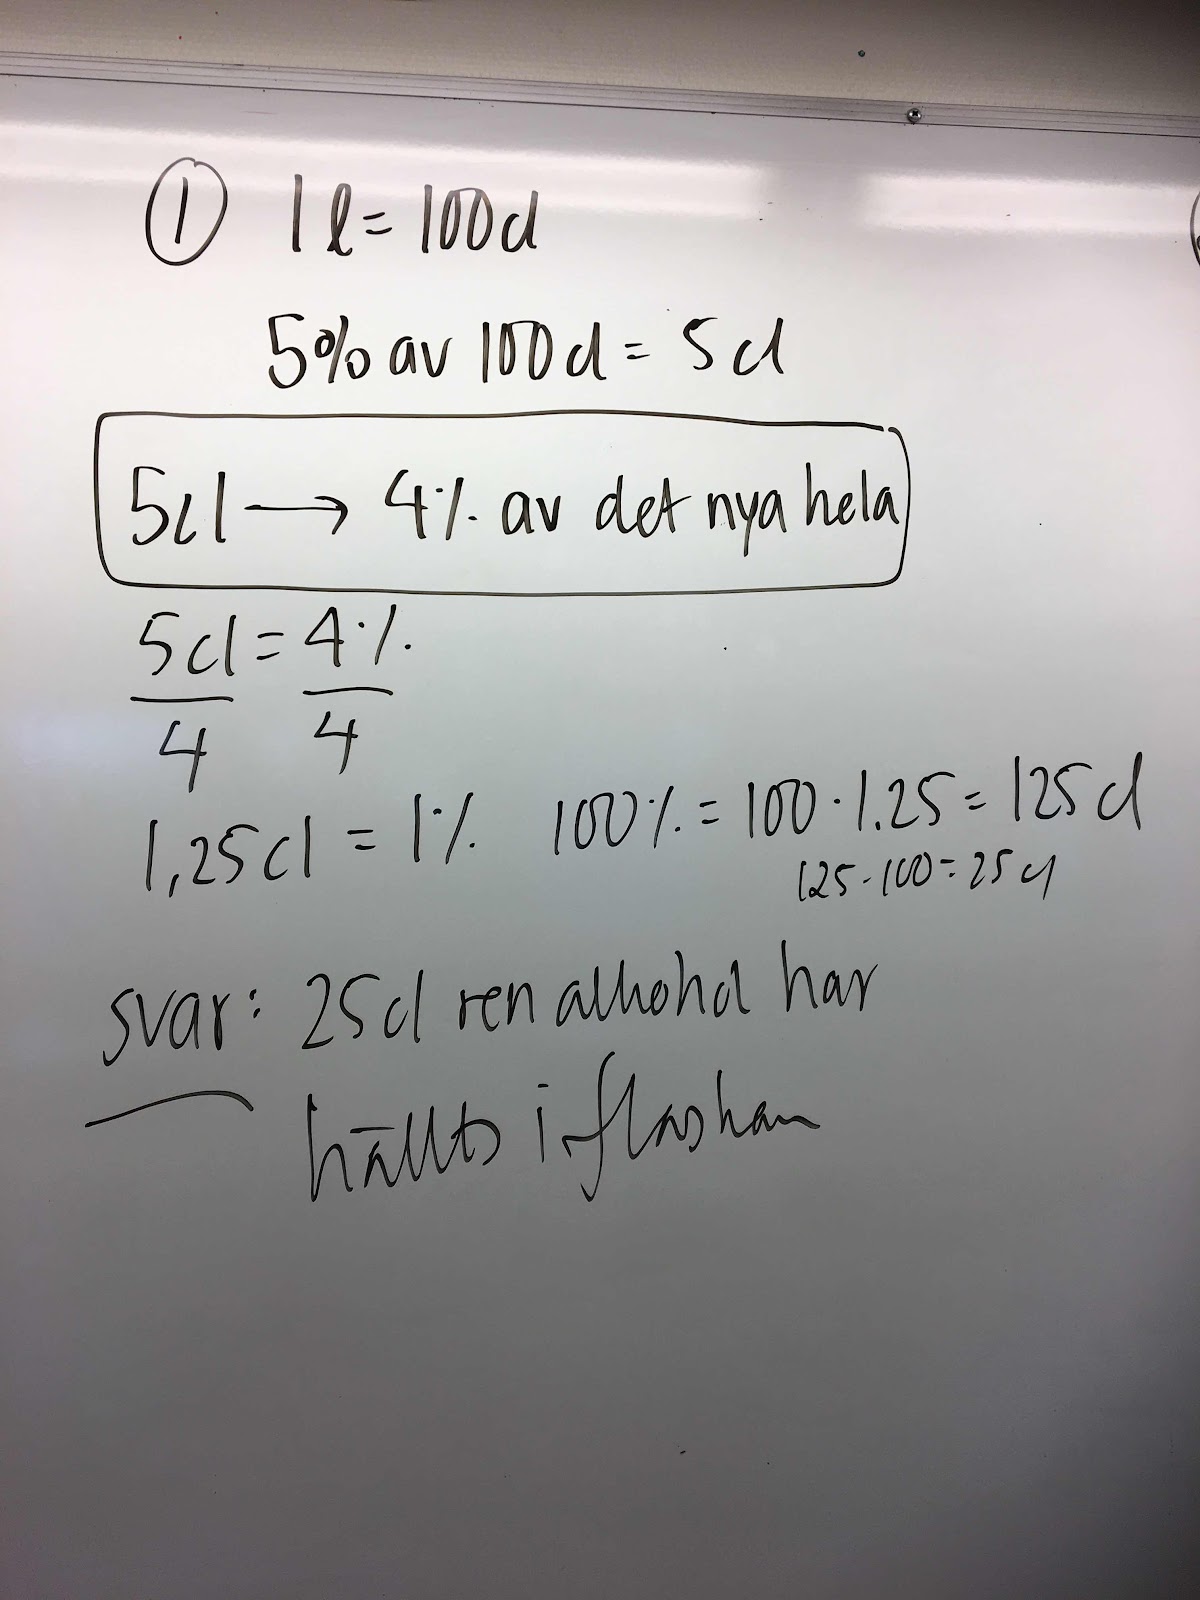 ① 1 l = 100 cl
5% av 100 cl = 5 cl
5 cl → 4% av det nya hela
5 cl/4 = 4%/4
1,25 cl = 1% 100% = 100 · 1.25 = 125 cl
125 - 100 = 25 cl
svar: 25 cl ren alkohol har
hällts i flaskan